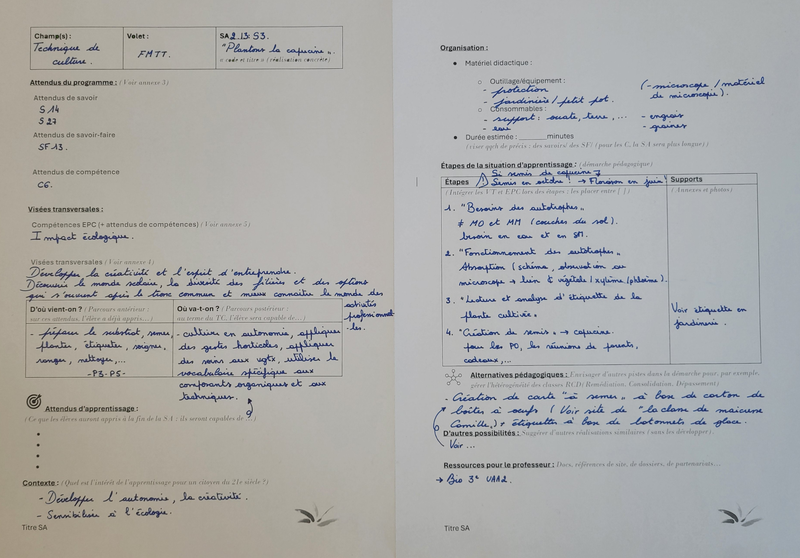 Champ(s) :
Technique de
culture.
Volet :
FMTT.
SA 2.13. S3.
"Plantons la capucine".
« code et titre » (réalisation concrète)
Attendus du programme : (Voir annexe 3)
Attendus de savoir
S 14
S 27
Attendus de savoir-faire
SF 13.
Attendus de compétence
C6.
Visées transversales :
Compétences EPC (+ attendus de compétences) ( Voir annexe 5)
Impact écologique.
Visées transversales (Voir annexe 4)
Développer la créativité et l'esprit d'entreprendre.
Découvrir le monde scolaire, la diversité des filières et des options
qui s'ouvrent après le tronc commun et mieux connaitre le monde des
activités
professionnel-
les.
D'où vient-on ? (Parcours antérieur :
sur ces attendus, l'élève a déjà appris...)
- préparer le substrat, semer,
planter, étiqueter, soigner,
ranger, nettoyer,...
- P3-P5-
Où va-t-on ? ( Parcours postérieur :
au terme du TC, l'élève sera capable de...)
- cultiver en autonomie, appliquer
des gestes horticoles, appliquer
des soins aux vgtx, utiliser le
vocabulaire spécifique aux
composants organiques et aux
techniques.
Attendus d'apprentissage :
(Ce que les élèves auront appris à la fin de la SA : ils seront capables de ...)
Contexte : (Quel est l'intérêt de l'apprentissage pour un citoyen du 21e siècle ?)
- Développer l'autonomie, la créativité.
- Sensibiliser à l'écologie.
Titre SA
Organisation :
• Matériel didactique :
○ Outillage/équipement :
- protection
- jardinière / petit pot.
(- microscope / matériel
de microscopie).
○ Consommables :
- support : ouate, terre, ...
- eau
- engrais
- graines
• Durée estimée : ______ minutes
Étapes de la situation d'apprentissage : (démarche pédagogique)
Si semis de capucine
Étapes ⚠ Semis en octobre ! → Floraison en juin
(Intégrer les VT et EPC lors des étapes : les placer entre [ ] )
Supports
(Annexes et photos)
1. "Besoins des autotrophes"
≠ MO et MM (couches du sol).
besoin en eau et en SM.
2. "Fonctionnement des autotrophes"
Absorption (schéma, observation au
microscope → lien § végétale / xylème/phloème).
3. "Lecture et analyse d'étiquette de la
plante cultivée".
Voir étiquette en
jardinerie.
4. "Création de semis" → capucine.
pour les PO, les réunions de parents,
cadeaux,...
Alternatives pédagogiques : Envisager d'autres pistes dans la démarche pour, par exemple,
gérer l'hétérogénéité des classes RCD( Remédiation, Consolidation, Dépassement)
- Création de carte "à semer" à base de carton de
boîtes à oeufs (Voir site de "la classe de maicresse
Camille") + étiquettes à base de batonnets de glace.
D'autres possibilités : Suggérer d'autres réalisations similaires (sans les développer).
Voir ...
Ressources pour le professeur : Docs, références de site, de dossiers, de partenariats...
→ Bio 3e UAA2.
Titre SA